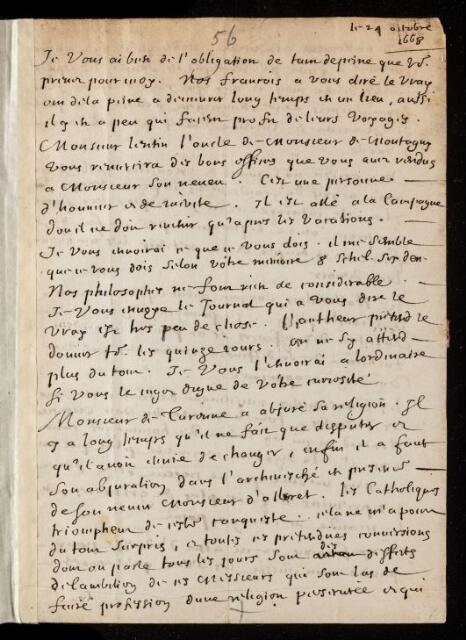 le 24 octobre
1668
56
Je vous ai bien de l'obligation de tant de peine que vs.
prenez pour moy. Nos francois a vous dire le vray
ont de la peine a demeurer long temps en un lieu, aussi
il y en a peu qui facent profit de leurs voyages.
Monsieur l'oncle de Monsieur de Montagny
vous remercira des bons offices que vous avez rendus
a Monsieur son neveu. C'est une personne
d'honneur et de . Il est allé a la Campagne
dont il ne doit revenir qu'apres les vacations.
Je vous envoirai ce que ie vous dois. il me semble
que ie vous dois selon vôtre memoire 8 Schel. six den.
Nos philosophes ne font rien de considerable.
Je vous envoye le Journal qui a vous dire le
vray est tres peu de chose. L'autheur pretend le
donner ts. les quinze iours. on ne s'y attend
plus du tout. Je vous l'envoirai a l'ordinaire
si vous le iugez digne de vôtre curiosité
Monsieur de Turenne a abjuré sa religion. Il
y a long temps qu'il ne fait que disputer et
qu'il avoit envie de changer, enfin il a fait
son abjuration dans l'archevesché en presence
de son neveu Monsieur d'albret. les Catholiques
triomphent de cette conqueste. cela ne m'a point
du tout surpris, et toutes ces pretendues conversions
dont on parle tous les jours sont des effects
de l'ambition de ces Messieurs qui sont las de
faire profession d'une religion persecutée et qui